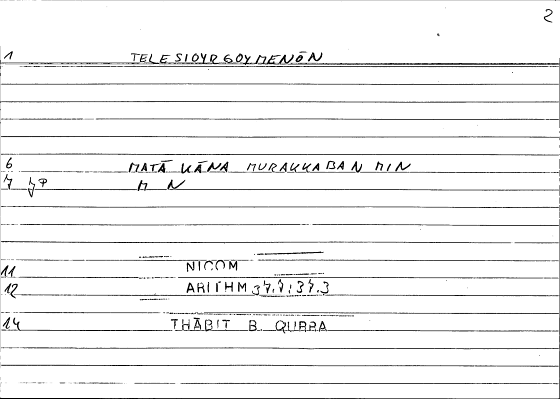 2
1 TELESIOYRGOYMENŌN
6 MATĀ KĀNA MURAKKABAN MIN
7 M N
11 NICOM
12 ARITHM 37.7; 37.3
14 THĀBIT B. QURRA